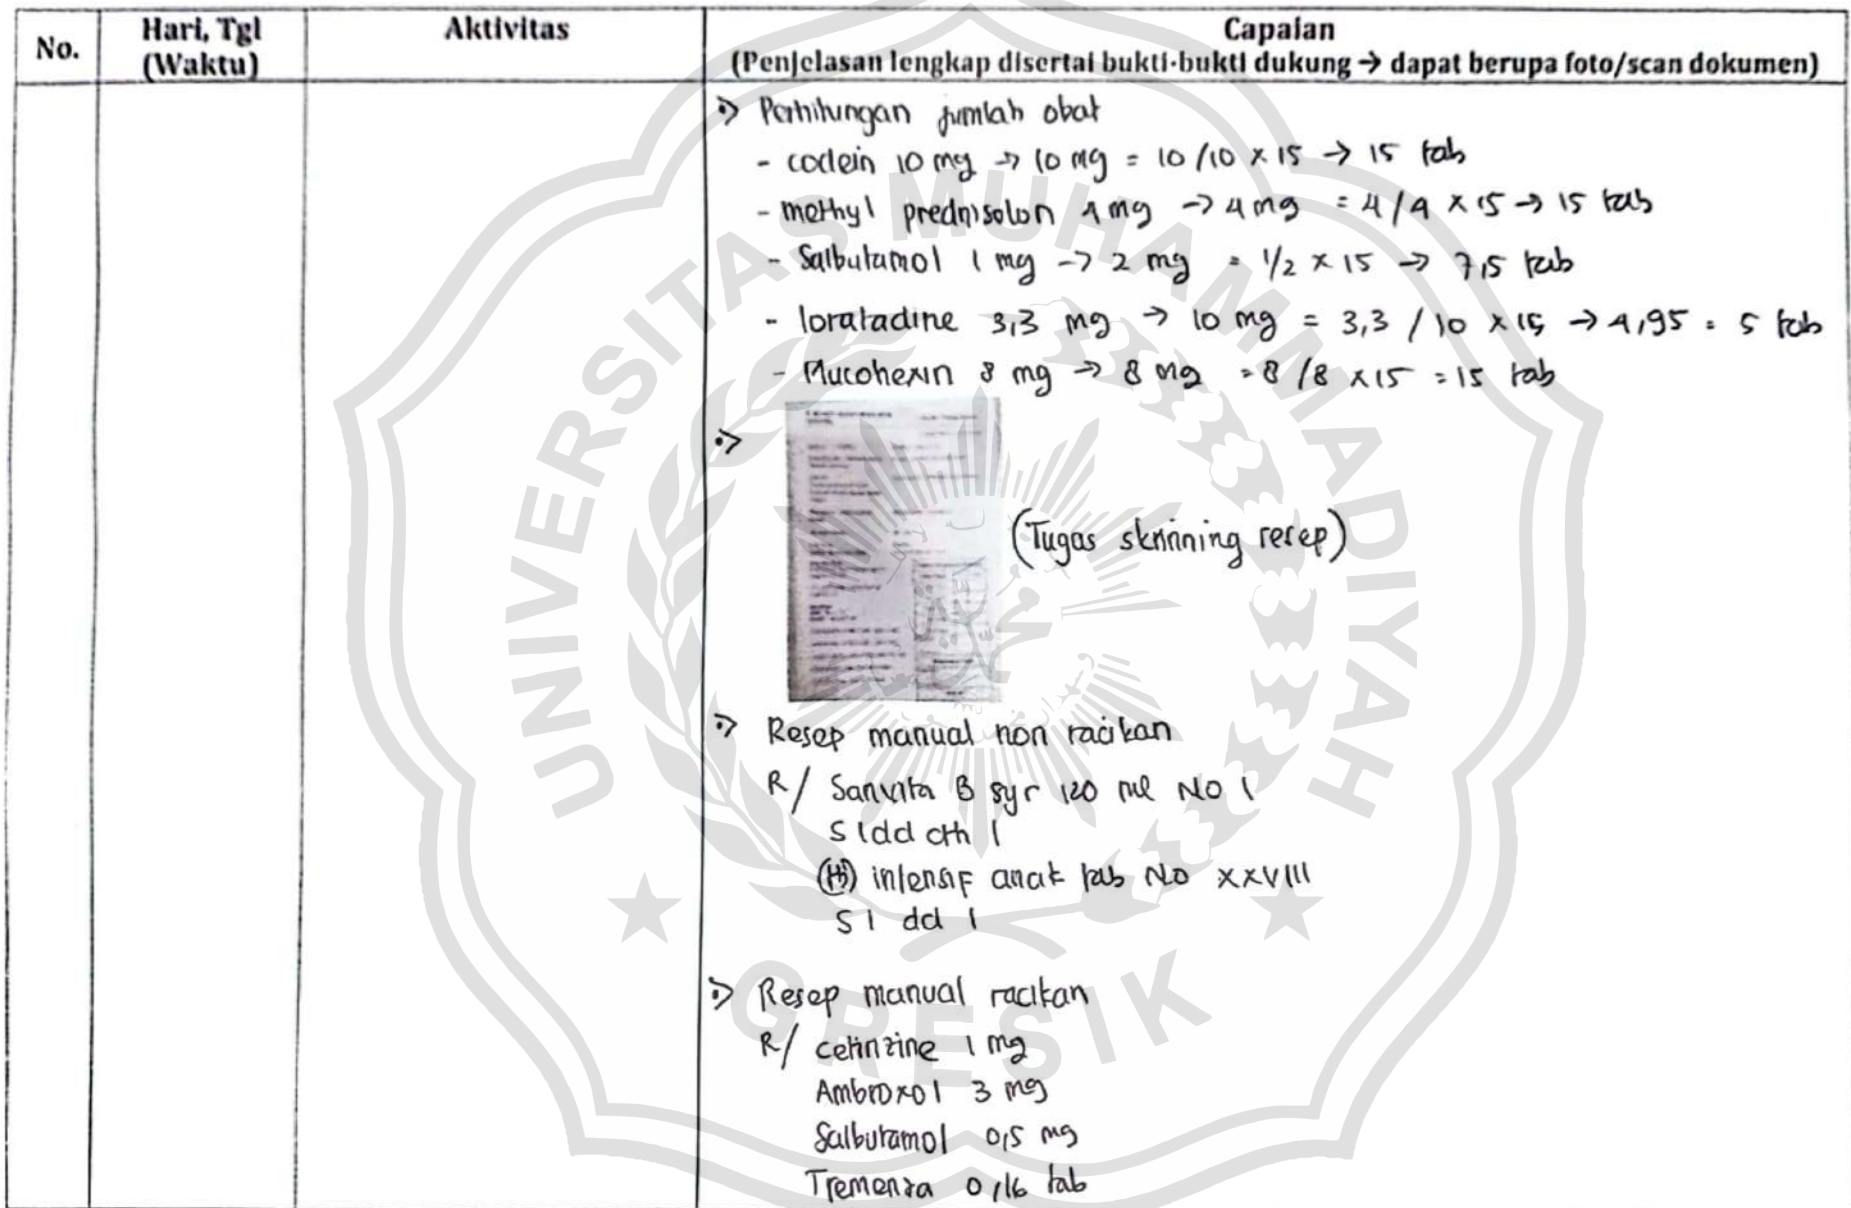 No.
Hari, Tgl
(Waktu)
Aktivitas
Capaian
(Penjelasan lengkap disertai bukti-bukti dukung → dapat berupa foto/scan dokumen)
Perhitungan jumlah obat
- codein 10 mg → 10 mg = 10/10 x 15 → 15 tab
- methyl prednisolon 4 mg → 4 mg = 4/4 x 15 → 15 tab
- Salbutamol 1 mg → 2 mg = 1/2 x 15 → 7,5 tab
- loratadine 3,3 mg → 10 mg = 3,3 / 10 x 15 → 4,95 = 5 tab
- Mucohexin 8 mg → 8 mg = 8/8 x 15 = 15 tab
(Tugas skrinning resep)
Resep manual non racikan
R/ Sanvita B syr 120 ml No 1
S 1dd cth 1
intensif anak tab No XXVIII
S 1 dd 1
Resep manual racikan
R/ cetirizine 1 mg
Ambroxol 3 mg
Salbutamol 0,5 mg
Tremenza 0,16 tab
UNIVERSITAS MUHAMMADIYAH
GRESIK